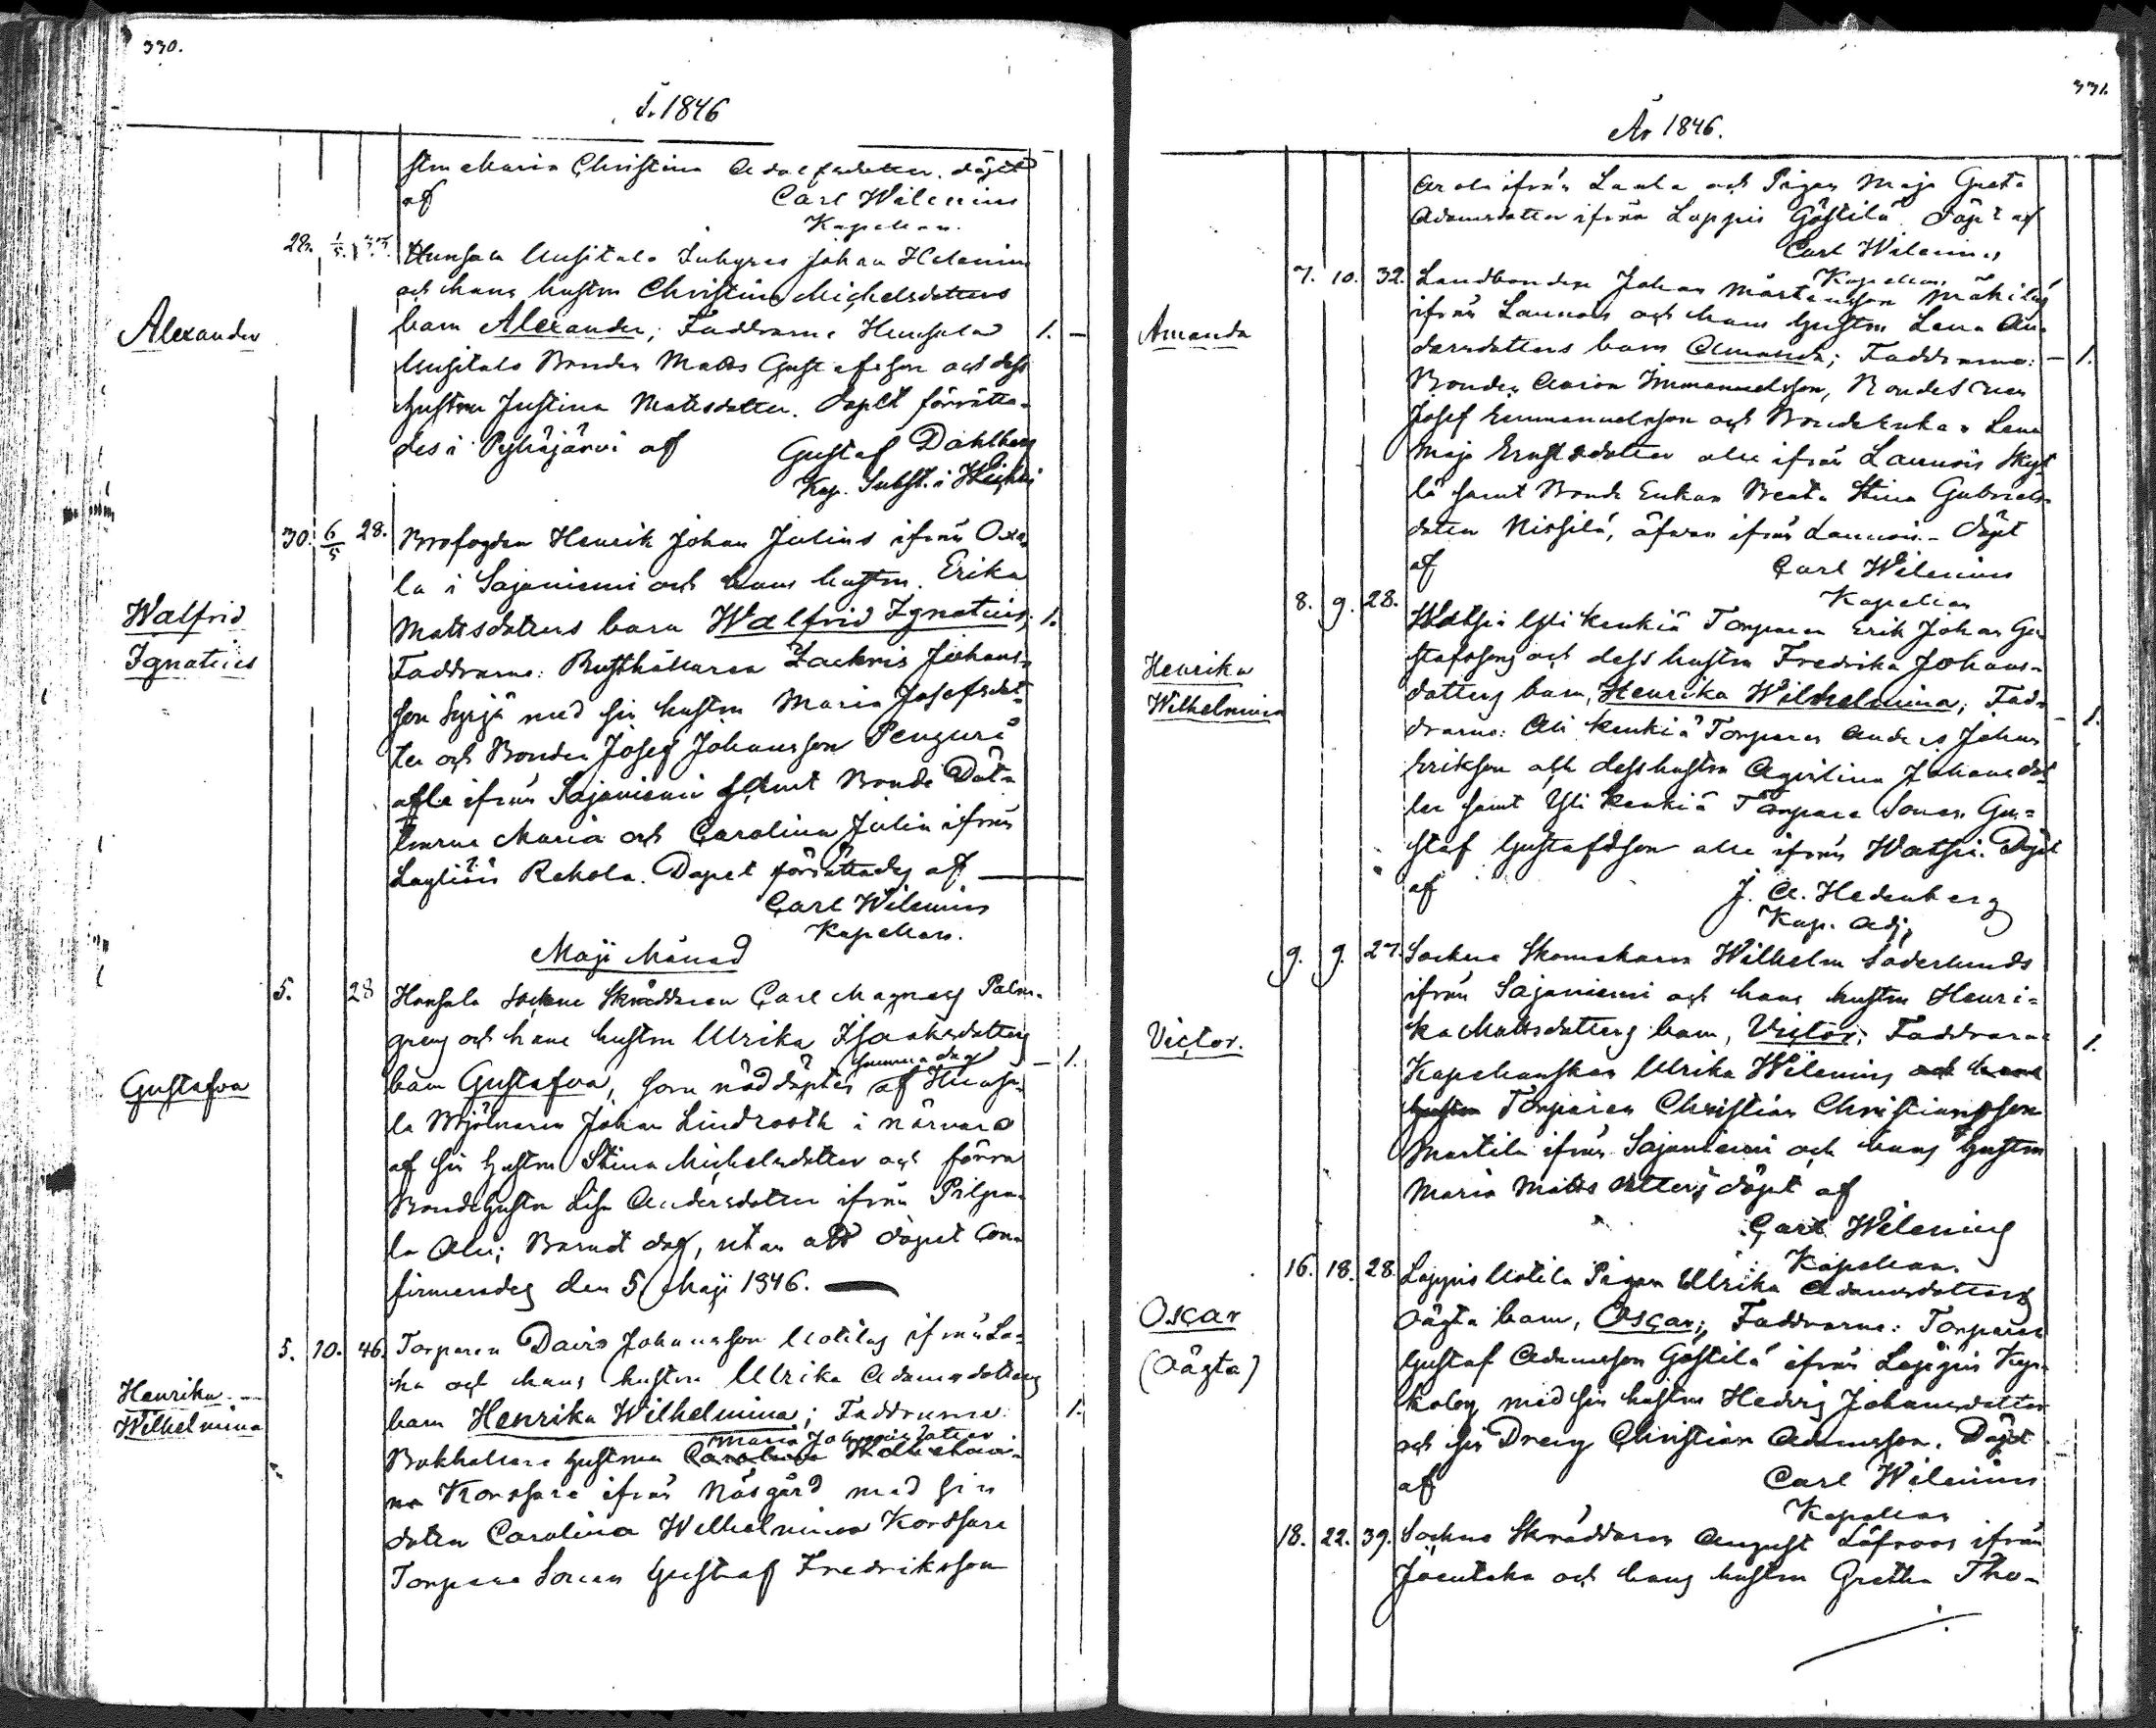 330.
Å. 1846
stru Maria Christina Adolfsdotter. döpt
af Carl Wilenius
Kapellan.
28. 1/5.
Hunsala Uusitalo Inhyres Johan Helenius
och hans hustru Christina Michelsdotters
Alexander
barn Alexander; Faddrarne Hunsala 1. –
Uusitalo Bonden Matts Gustafsson och dess
hustru Justina Mattsdotter. Dopet förrätta-
des i Pyhäjärvi af Gustaf Dahlberg
Kap. Subst. i
30. 6/5 28. Brofogden Henrik Johan Julius ifrån Oxa-
la i Sajaniemi och hans hustru Erika
Walfrid
Ignatius
Mattsdotters barn Walfrid Ignatius; 1.
Faddrarne: Rusthållaren Zachris Johans-
son Syrjä med sin hustru Maria Josefsdot-
ter och Bonden Josef Johansson Penguri
alla ifrån Sajaniemi samt Bonde Döt-
trarne Maria och Carolina Julin ifrån
Rehola. Dopet förrättades af
Carl Wilenius
Kapellan.
Maji Månad
5. 28 Hunsala Sockne Skräddaren Carl Magnus Palm-
grens och hans hustru Ulrika Isaaksdotters
samma dag – 1.
Gustafva
barn Gustafva, som nöddöptes af Hunsa-
la Mjölnaren Johan Lindrooth i närvaro
af sin hustru Stina Michelsdotter och förra
Bondehustrun Lisa Andersdotter ifrån Pilpa-
la Barnet dog, utan att dopet Con-
firmerades den 5 Maji 1846.
5. 10. 46. Torparen David Johansson Uotilas ifrån
och hans hustru Ulrika Adamsdotters
Henrika
Wilhelmina
barn Henrika Wilhelmina; Faddrarne: 1.
Maria Johansdotter
Bokhållare hustrun Carolina
Korssare ifrån Näsgård med sin
dotter Carolina Wilhelmina Korssare
Torpare Sonen Gustaf Fredriksson
331.
År 1846.
ifrån och Pigan Maja Greta
Adamsdotter ifrån Loppis Göstilä. Döpt af
Carl Wilenius
Kapellan.
7. 10. 32. Landbonden Johan Mårtensson Mäkiläs
ifrån Launois och hans hustru Lena An-
Amanda
dersdotters barn Amanda; Faddrarne: – 1.
Bonden Aaron Immanuelsson, Bondesonen
Josef Emmanuelsson och Bondeenkan Lena
Maja Ernstsdotter alla ifrån Launois
lä samt Bonde Enkan Beata Stina Gabriels-
dotter Nissilä, äfven ifrån Launois. Döpt
af Carl Wilenius
Kapellan
8. 9. 28. Watsia Yli Kenkiä Torparen Erik Johan Gu-
stafssons och dess hustru Fredrika Johans-
Henrika
Wilhelmina
dotters barn, Henrika Wilhelmina; Fad-
drarne: Ali Kenkiä Torparen Anders Johan – 1.
Eriksson och dess hustru Agustina Johansdot-
ter samt Yli Kenkiä Torpare Sonen Gu-
staf Gustafsson alla ifrån Watsia. Döpt
af J. A. Hedenberg
Kap. Adj.
9. 9. 27. Sockne Skomakaren Wilhelm Söderlunds
ifrån Sajaniemi och hans hustru Henri-
Victor.
ka Mattsdotters barn, Victor; Faddrarne 1.
Kapellanskan Ulrika Wilenius och hans
hustru Torparen Christian Christiansson
Martila ifrån Sajaniemi och hans hustru
Maria Mattsdotter; döpt af
Carl Wilenius
Kapellan.
16. 18. 28. Loppis Uotila Pigan Ulrika Adamsdotters
Oscar
(Oägta)
Oägta barn, Oscar; Faddrarne: Torparen
Gustaf Adamsson Göstilä ifrån Loppis Kyr-
koby med sin hustru Hedvig Johansdotter
och sin Dreng Christian Adamsson. Döpt
af Carl Wilenius
Kapellan
18. 22. 39. Sockne Skräddaren August Löfroos ifrån
Joentaka och hans hustru Gretha Tho-